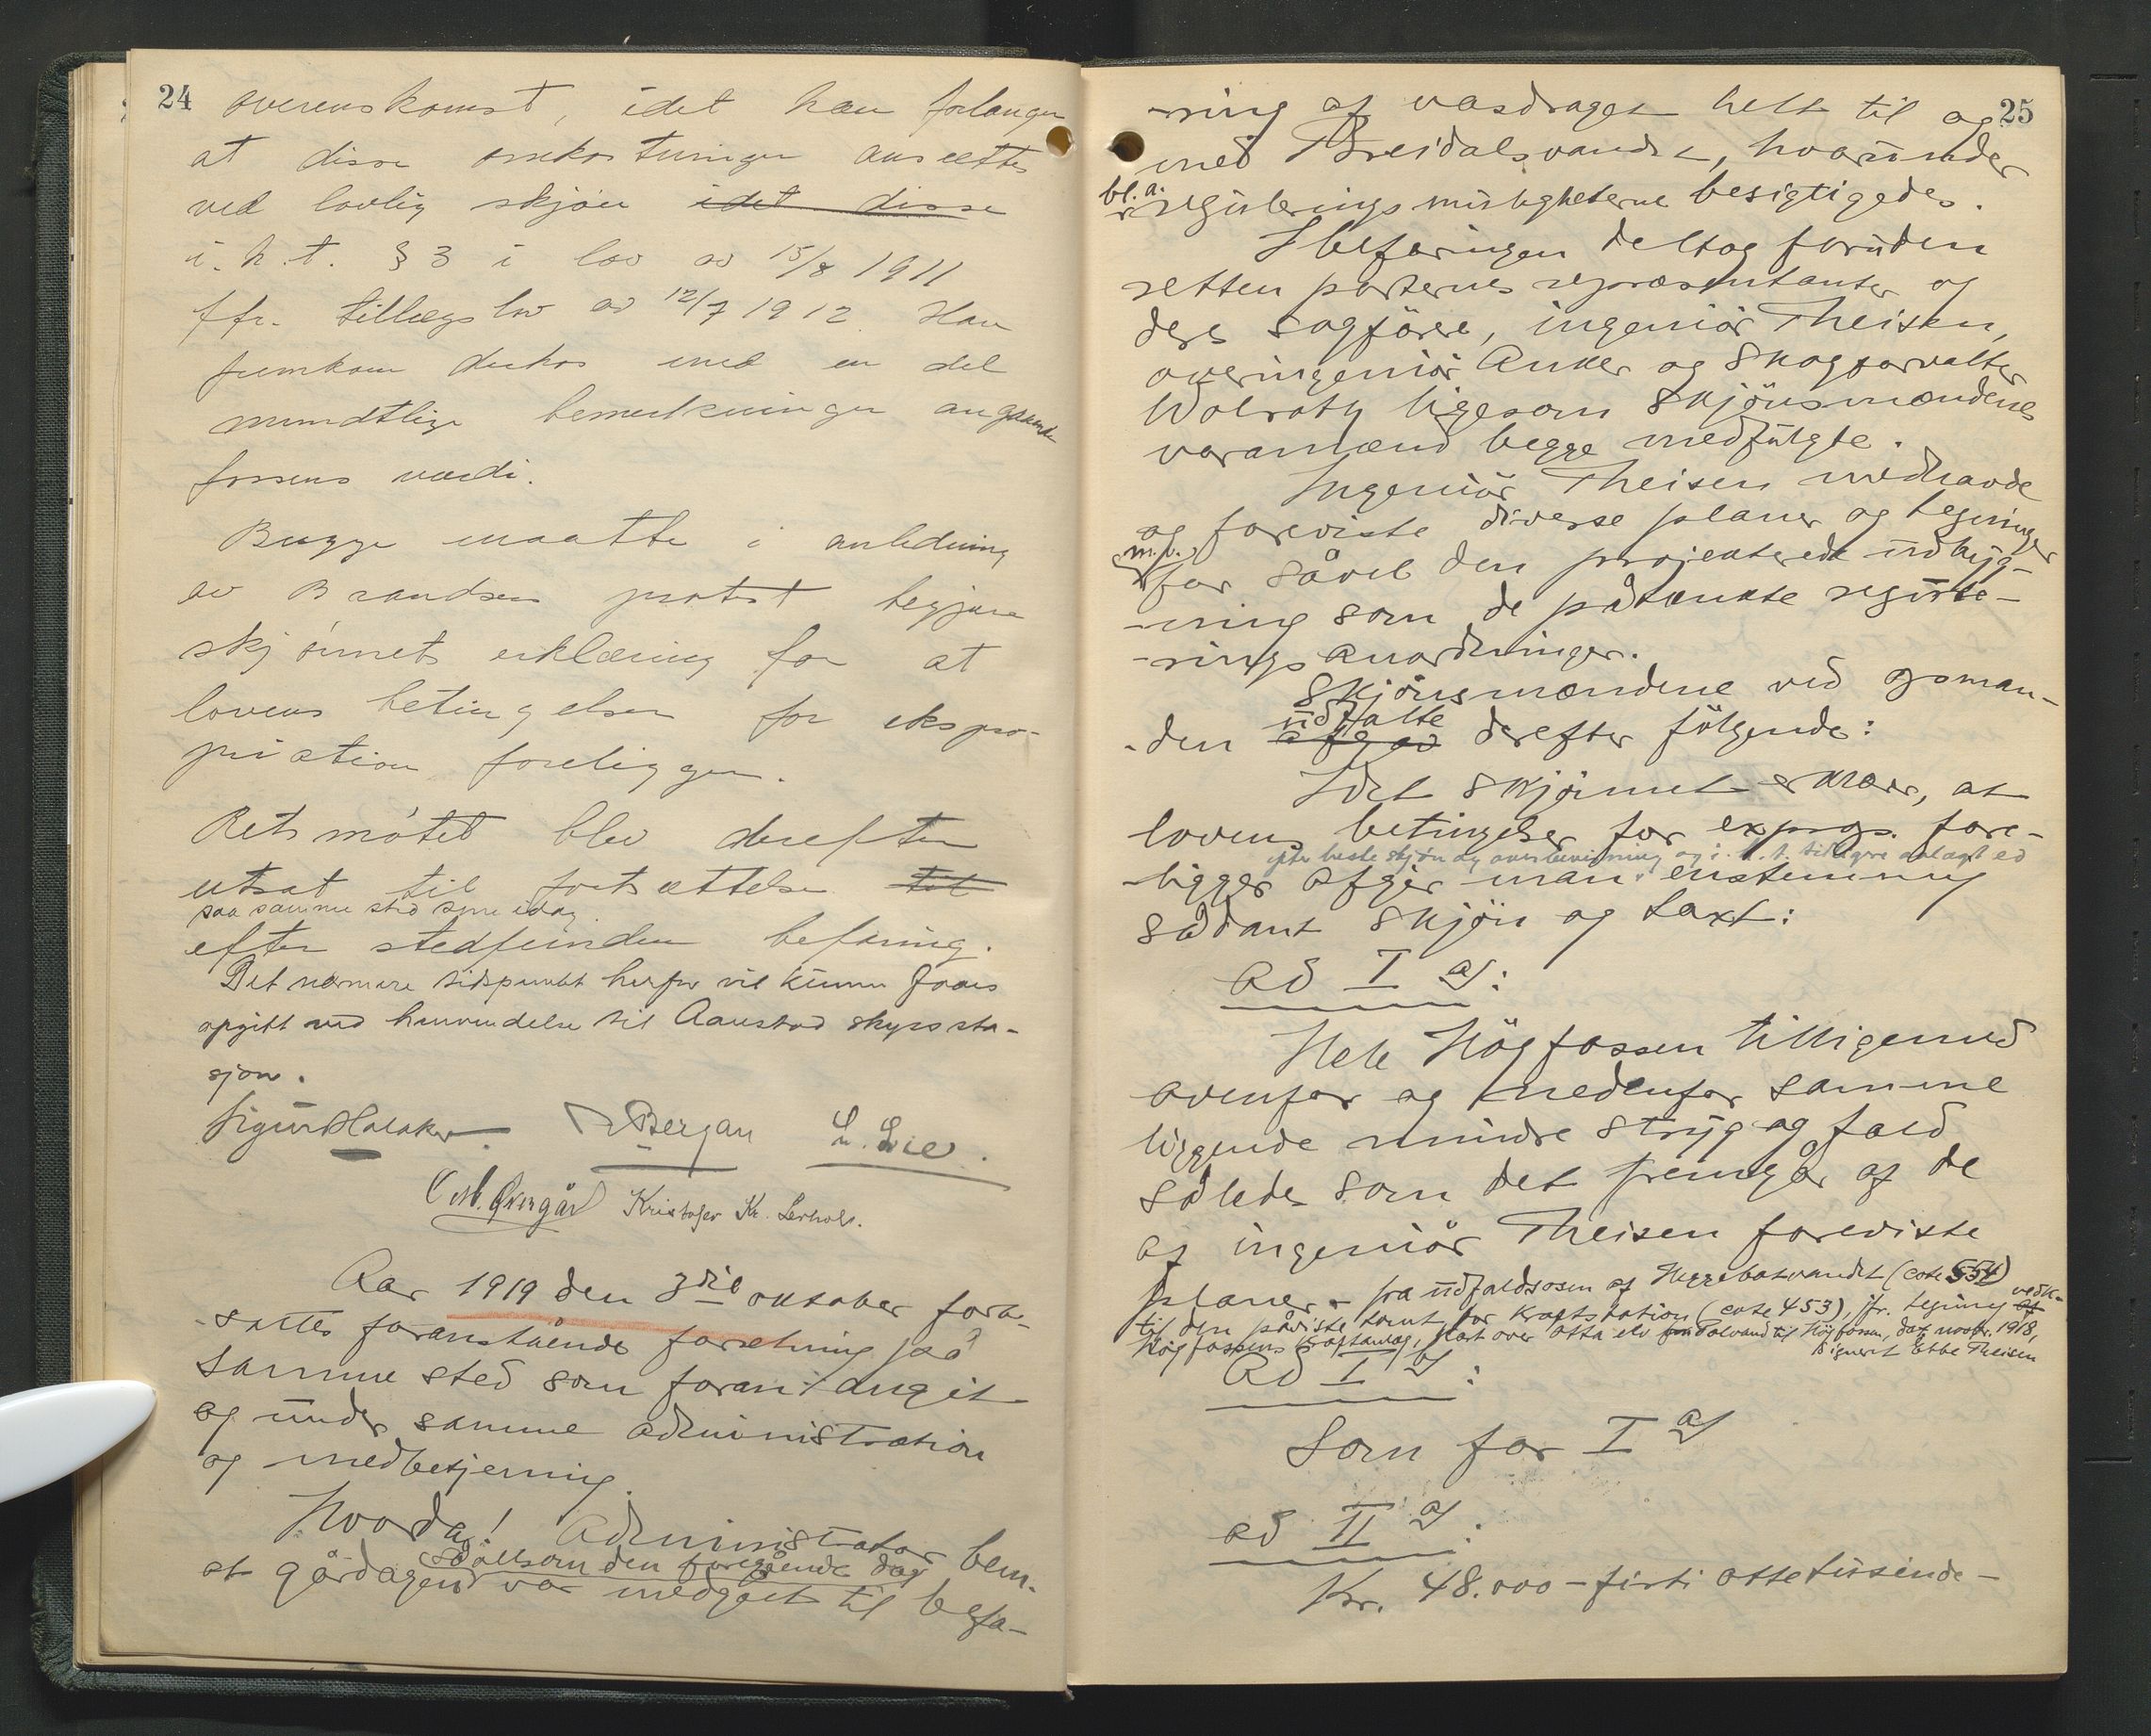 24
overenskomst, idet han forlanger
at disse omkostninger ansættes
ved lovlig skjøn idet disse
i. h. t. § 3 i lov av 15/8 1911
jfr. tillægslov av 12/7 1912. Han
fremkom derhos med en del
mundtlige bemerkninger angaaende
fossens værdi.
Bugge maatte i anledning
av Brandsen protest begjære
skjønnets erklæring for at
lovens betingelser for ekspro-
priation foreligger.
Retsmötet blev derefter
utsat til fortsættelse til
paa samme sted som idag
efter stedfunden befaring.
Det nærmere tidspunkt herfor vil kunne faaes
opgitt ved henvendelse til Aanstad skyssta-
sjon.
Sigurd Bergan L. Lie.
O. M. Øvergård Kristofer Kr. Lerhol.
Aar 1919 den 3die oktober fort-
sattes foranstående forretning på
samme sted som foran angit
og under samme administration
og medbetjening.
Hvorda! Administrator bem.
såvelsom den foregående dag
at gårdagen var medgået til befa-
25
-ring af vasdraget helt til og
med Breidalsvandet, hvorunder
bl. a.
reguleringsmuligheterne besigtigedes.
I befaringen deltog foruden
retten parternes repræsentanter og
deres sagförere, ingeniör Theisen,
overingeniör Anker og Skogforvalter
Wolrath ligesom skjönsmændenes
varamænd begge medfulgte.
Ingeniör Theisen medhavde
og foreviste diverse planer og tegninger
m.v.
for såvel den projekterede udbyg-
-ning som de påtænkte regule-
-ringsanordninger.
Skjönsmændene ved opman-
udtalte
-den afgav derefter fölgende:
Idet skjönnet erklærer, at
lovens betingelser for exprop. fore-
efter beste skjøn og overbevisning og i. h. t. tidligere avlagt ed
-ligger afgir man enstemmig
sådant skjön og taxt:
ad I a):
Hele Högfossen tilligemed
ovenfor og nedenfor samme
liggende mindre stryg og fald
således som det fremgår af de
af ingeniör Theisen foreviste
planer - fra udfaldsosen af Heggebotvandet (cote 554)
til den påviste tomt for kraftstation (cote 453), jfr. tegning af vedk.
Högfossens kraftanlæg, kart over Otta elv fra Polvand til Högfossen, dat novbr. 1918,
signert Ebbe Theisen
Ad I b):
Som for I a)
ad II a):
Kr. 48.000 - firti otte tusinde -